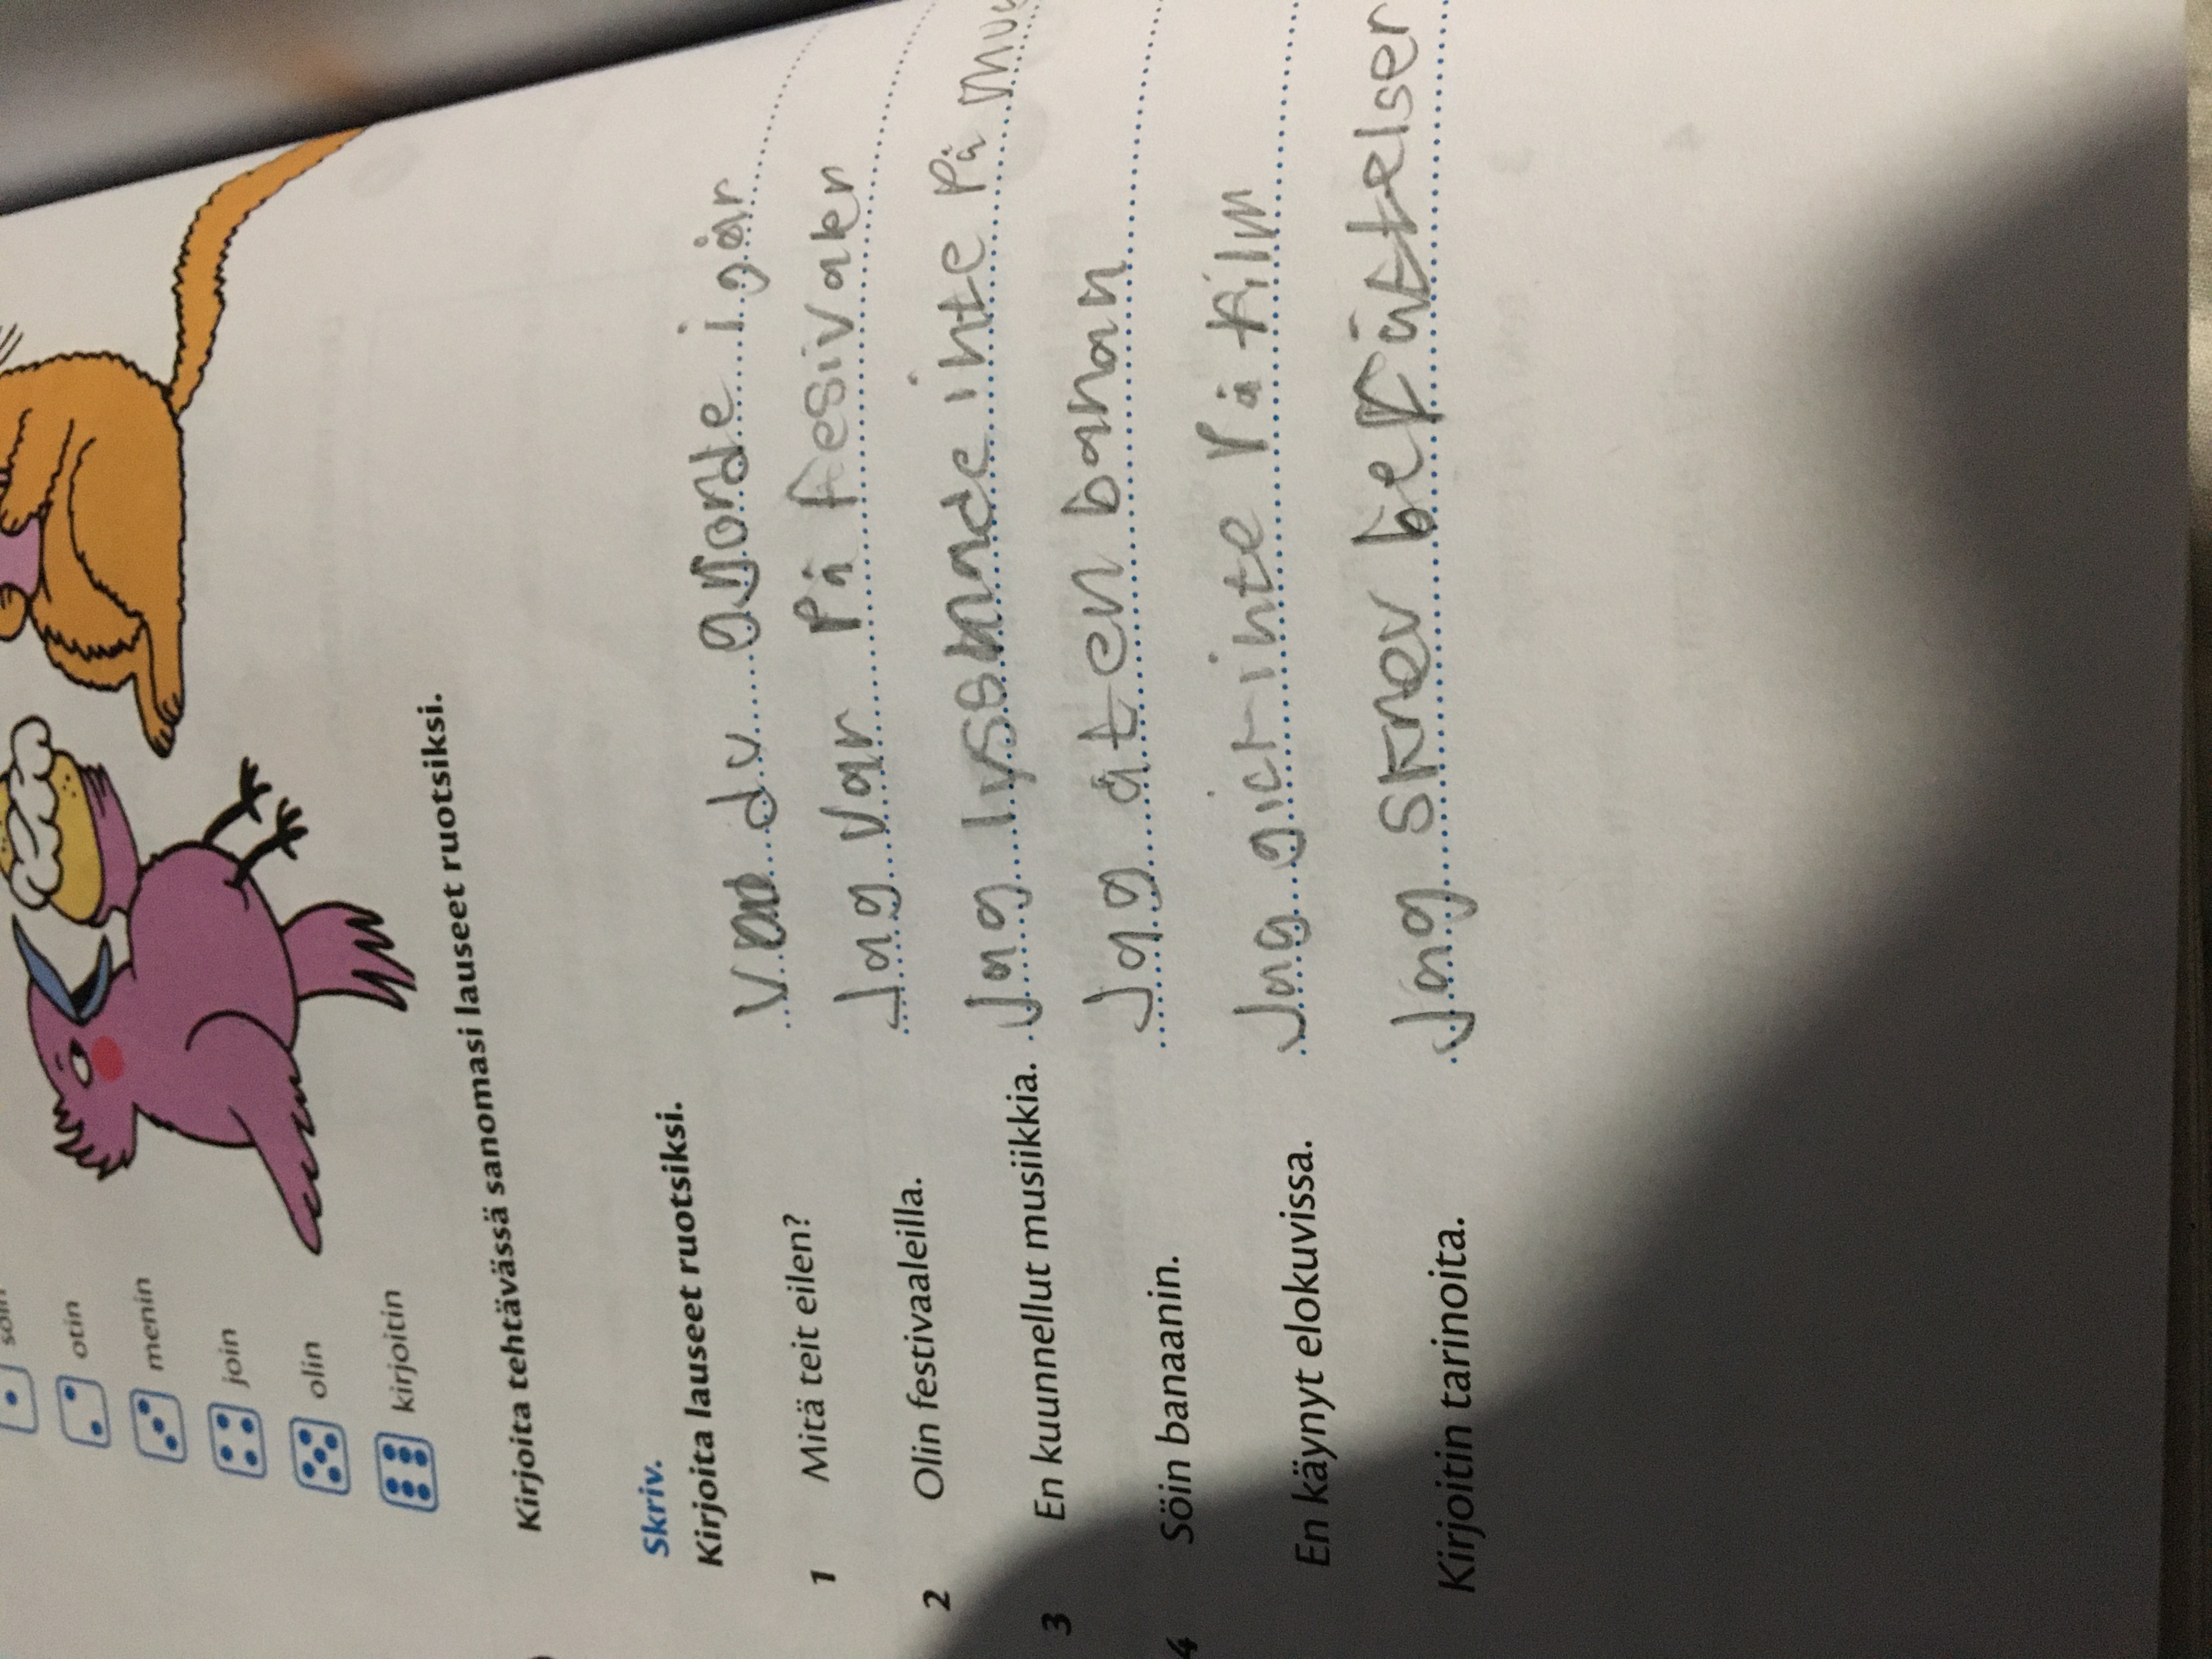 söin
otin
menin
join
olin
kirjoitin
Kirjoita tehtävässä sanomasi lauseet ruotsiksi.
Skriv.
Kirjoita lauseet ruotsiksi.
1 Mitä teit eilen? Vad du gjorde i går
2 Olin festivaaleilla. Jag var på fesivaler
3 En kuunnellut musiikkia. Jag lyssnade inte på mu
4 Söin banaanin. Jag åt en banan
En käynyt elokuvissa. Jag gick inte på film
Kirjoitin tarinoita. Jag skrev berättelser